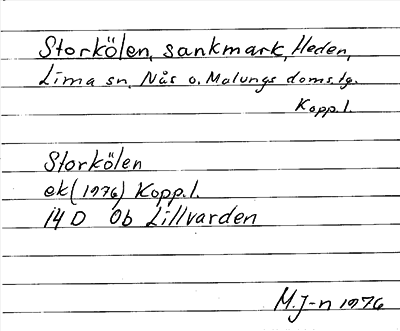 Storkölen, sankmark, Heden,
Lima sn, Nås o. Malungs doms.lg.
Kopp.l.
Storkölen
ek (1976) Kopp.l.
14 D 0b Lillvarden
M.J-n 1976